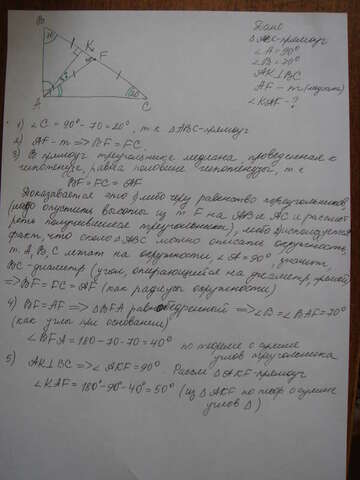 Дано
B
△ABC-прямоуг
∠A = 90°
∠B = 70°
AK⊥BC
AF - m (медиана)
∠KAF - ?
K
F
A
C
70°
20°
1) ∠C = 90° - 70 = 20°, т.к △ABC-прямоуг
2) AF - m => BF = FC.
3) В прямоуг треугольнике медиана, проведенная к
гипотенузе, равна половине гипотенузы, т.к
BF = FC = AF
Доказывается это либо через равенство треугольников,
(либо опустить высоты из т. F на AB и AC и рассмот
реть получившиеся треугольники), либо используется
факт, что около △ABC можно описать окружность,
т. A, B, C лежат на окружности, ∠A = 90°, значит,
BC - диаметр (угол, опирающийся на диаметр, прямой)
=> BF = FC = AF (как радиусы окружности)
4) BF = AF => △BFA равнобедренный => ∠B = ∠BAF = 70°
(как углы при основании)
∠BFA = 180 - 70 - 70 = 40° по теореме о сумме
углов треугольника
5) AK⊥BC => ∠AKF = 90°. Рассм △AKF-прямоуг
∠KAF = 180° - 90° - 40° = 50° (из △AKF по теор о сумме
углов △)